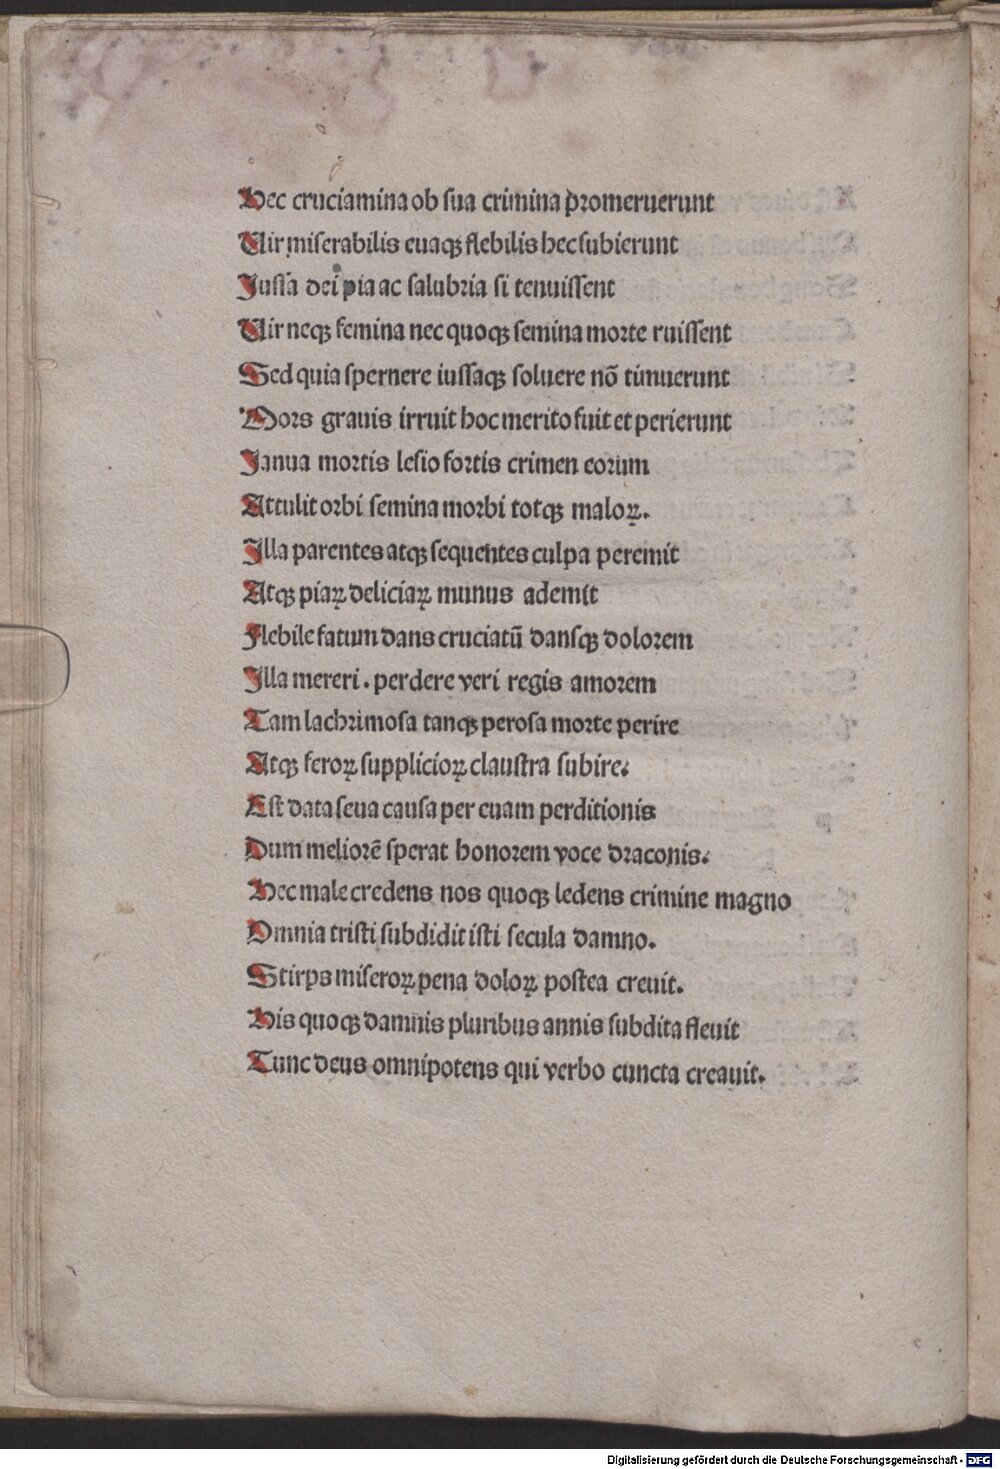 Hec cruciamina ob sua crimina promeruerunt
Uir miserabilis euaqꝫ flebilis hec subierunt
Jussa dei pia ac salubria si tenuissent
Uir neqꝫ femina nec quoqꝫ semina morte ruissent
Sed quia spernere iussaqꝫ soluere nō timuerunt
Mors grauis irruit hoc merito fuit et perierunt
Janua mortis lesio fortis crimen eorum
Attulit orbi semina morbi totqꝫ maloꝝ.
Illa parentes atqꝫ sequentes culpa peremit
Atqꝫ piaꝝ deliciaꝝ munus ademit
Flebile fatum dans cruciatū dansqꝫ dolorem
Illa mereri. perdere veri regis amorem
Tam lachrimosa tanqꝫ perosa morte perire
Atqꝫ feroꝝ supplicioꝝ claustra subire.
Est data seua causa per euam perditionis
Dum meliorē sperat honorem voce draconis.
Hec male credens nos quoqꝫ ledens crimine magno
Omnia tristi subdidit isti secula damno.
Stirps miseroꝝ pena doloꝝ postea creuit.
His quoqꝫ damnis pluribus annis subdita fleuit
Tunc deus omnipotens qui verbo cuncta creauit.
Digitalisierung gefördert durch die Deutsche Forschungsgemeinschaft - DFG